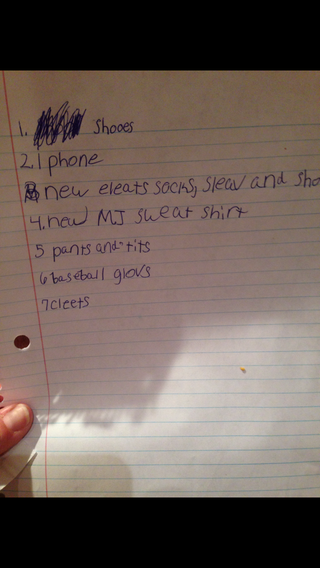 1. Shooes
2. I phone
3 new eleats socks, sleav and sho
4. new MJ sweat shirt
5 pants and tits
6 baseball glovs
7 cleets